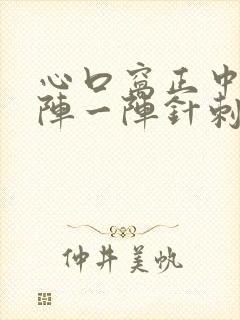 心口窩正中
陣一陣針刺
仲井美帆